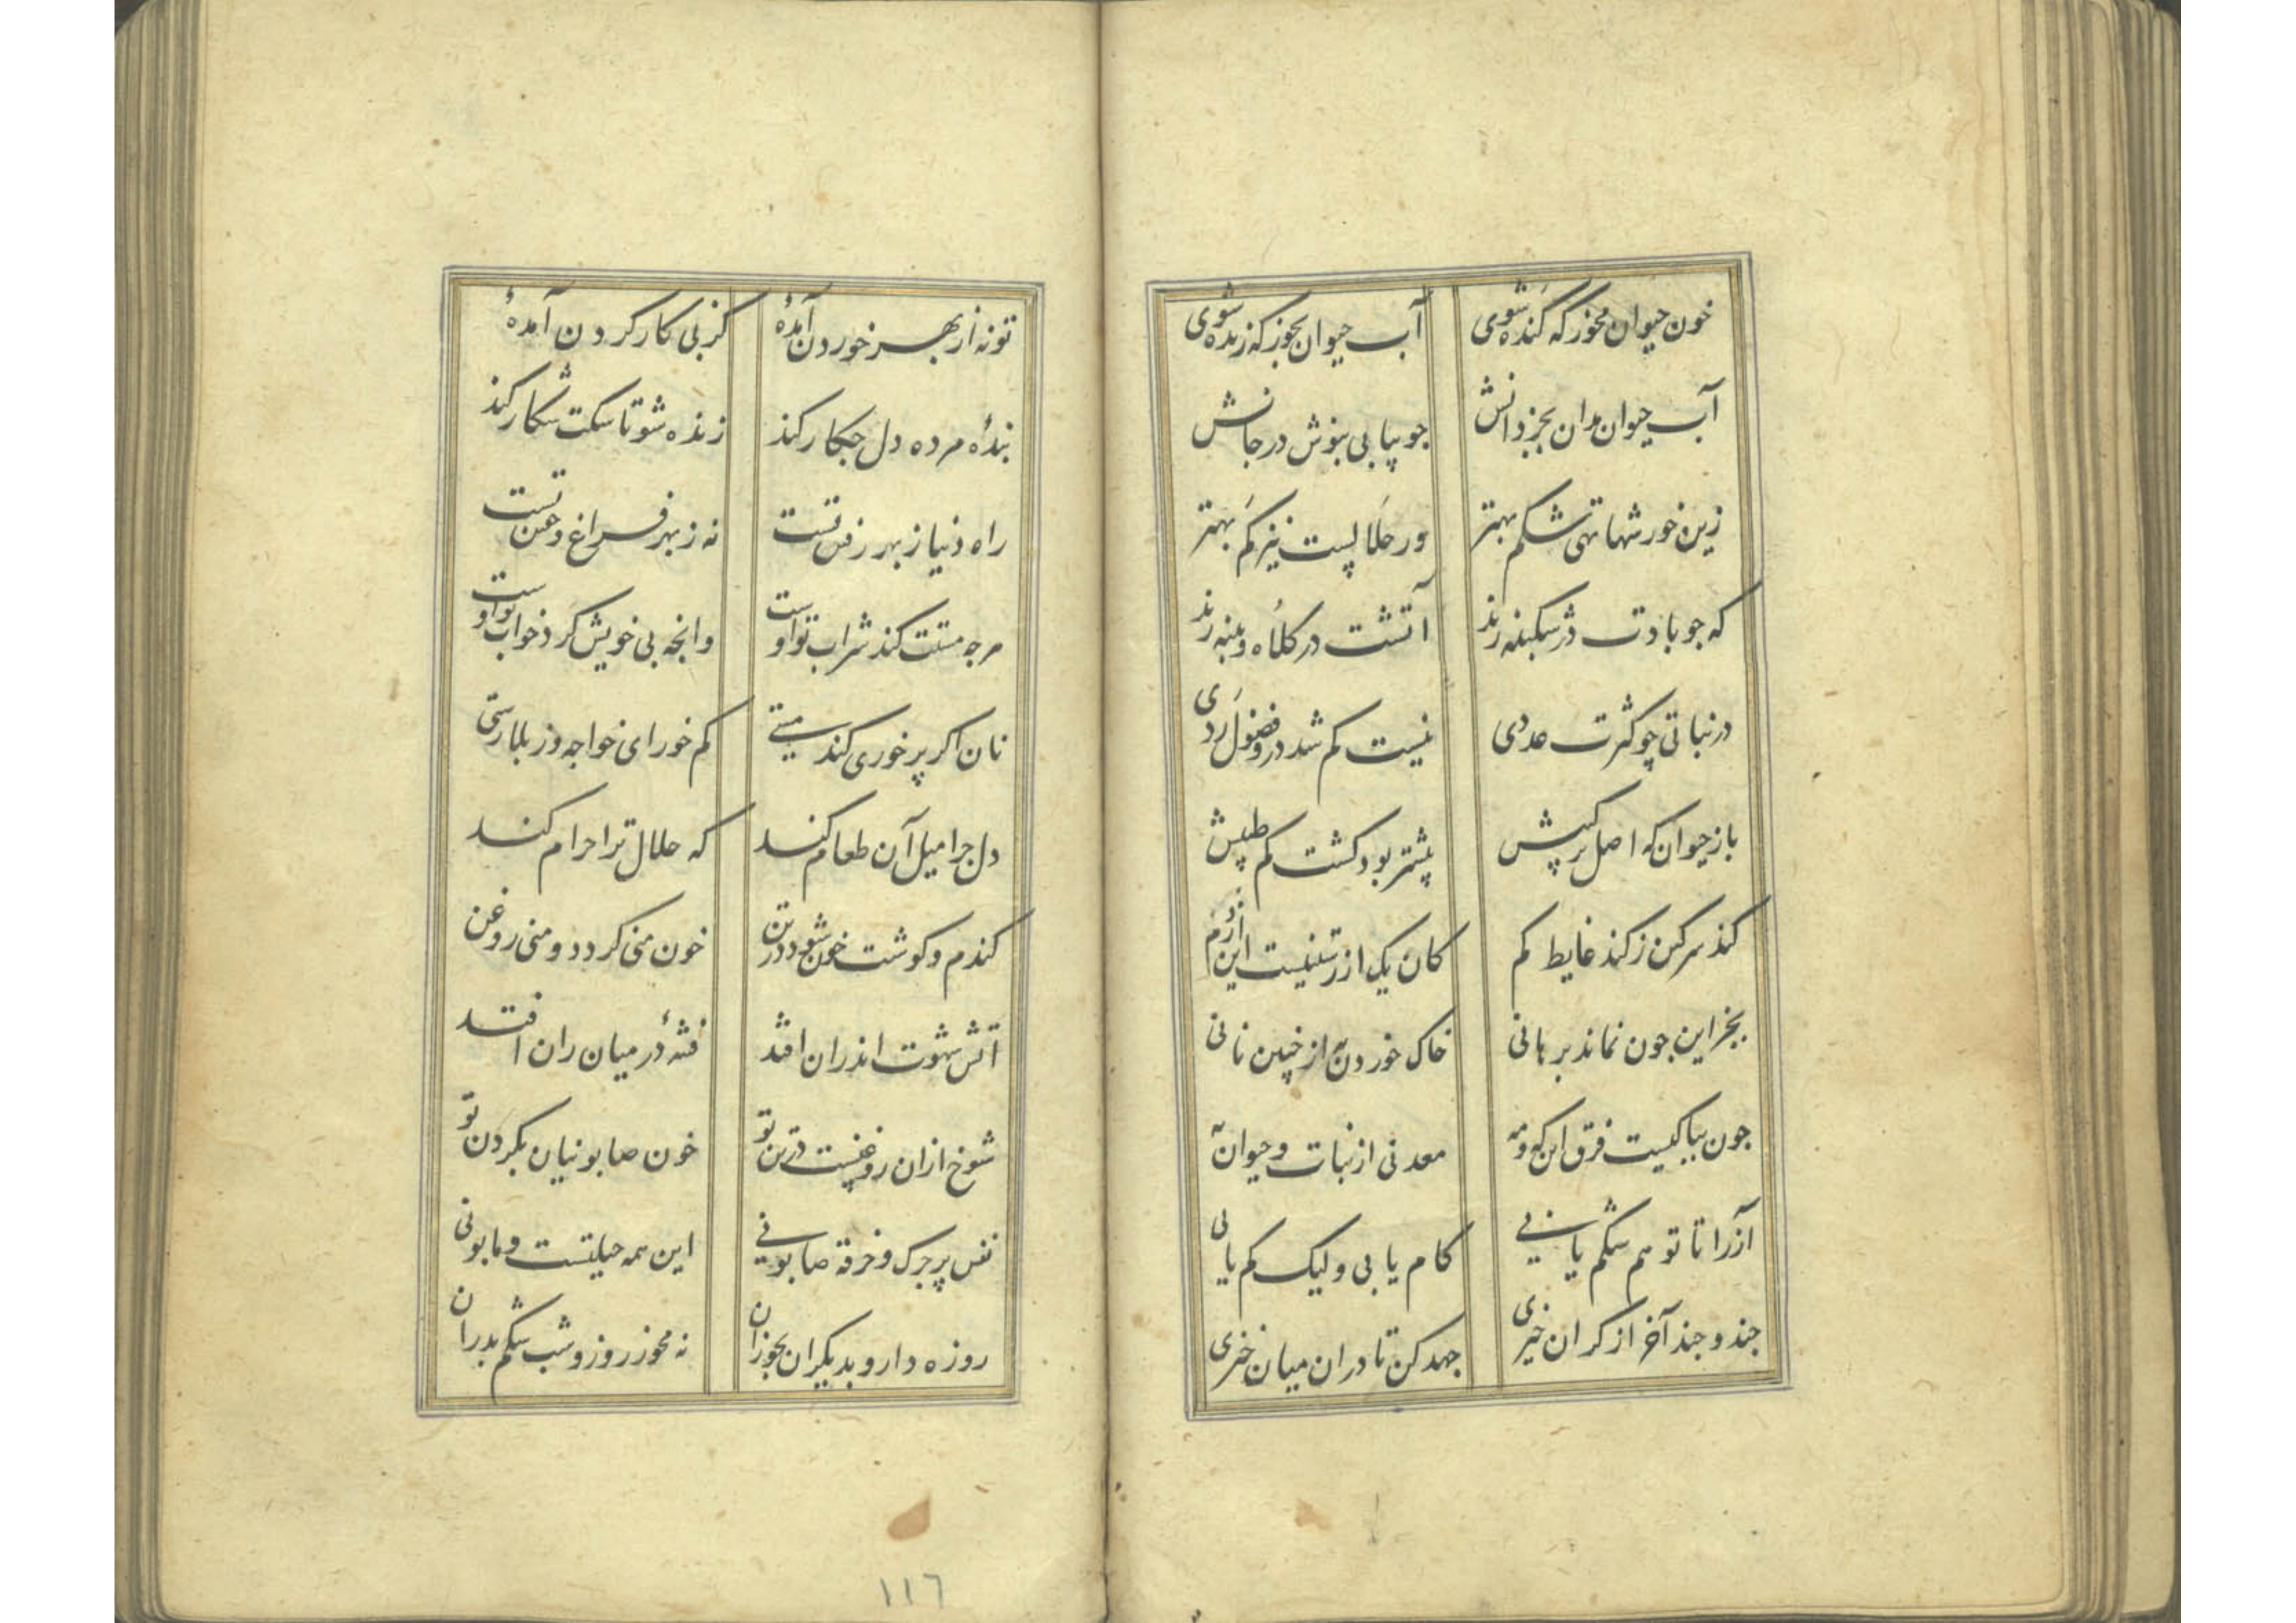 خون حیوان مخور که کنده شوی آب حیوان بخور که زنده شوی
آب حیوان مدان بجز دانش جو بیابی بنوش در جانش
زین خورشها تهی شکم بهتر ور حلالیست نیز کم بهتر
که جو بادت در سکبنه زند آتشت در کلاه و پنبه زند
در نباتی چو کثرت عددی نیست کم شد درو فضول ردی
باز حیوان که اصل ترکیبش بیشتر بود کشت کم طیبش
کند سرکین ز کند غایط کم کان یک از رستنیست این از دم
بجز این جون نماند برهانی خاک خوردن به از جنین نانی
جون بپاکیست فرق این که و مه معدنی از نبات و حیوان به
آز را تا تو هم شکم یابی کام یابی و لیک کم یابی
جند و جند آخر از کران خیزی جهد کن تا در ان میان خیزی
تو نه از بهر خوردن آمدهٔ کز بی کار کردن آمدهٔ
بندهٔ مرده دل جکار کند زنده شو تا سکت شکار کند
راه دنیا ز بهر رفتن تست نه ز بهر فراغ و خفتن تست
هرجه مستت کند شراب تو اوست وانجه بی خویش کرد خواب تو اوست
نان اکر پر خوری کند مستی کم خور ای خواجه وز بلا رستی
دل جرا میل آن طعام کند که حلال ترا حرام کند
کندم و کوشت خون شود در تن خون منی کردد و منی روغن
آتش شهوت اندران افتد فتنهٔ در میان ران افتد
شوخ ازان روغنیست در تن تو خون صابونیان بکردن تو
نفس پر جرک و خرقه صابونی این همه حیلتست و مابونی
روزه دار و بدیکران بخوران نه مخور روز و شب شکم بدران
١١٦